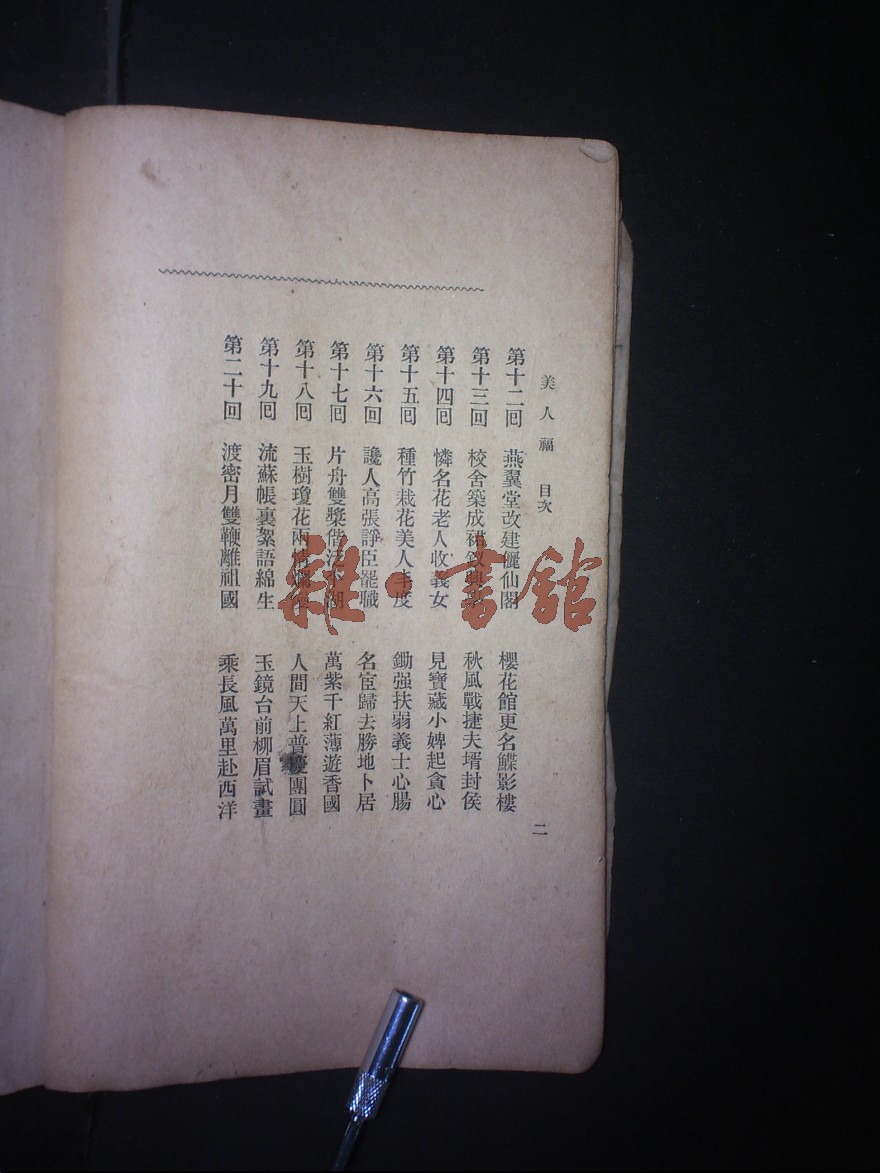 美人福 目次 二
第十二囘 燕翼堂改建儷仙閣 櫻花館更名鰈影樓
第十三回 校舍築成裙釵興 秋風戰捷夫壻封侯
第十四囘 憐名花老人收義女 見寶藏小婢起貪心
第十五囘 種竹栽花美人丰度 鋤强扶弱義士心腸
第十六回 讒人高張諍臣罷職 名宦歸去勝地卜居
第十七囘 片舟雙槳偕泛湖 萬紫千紅薄遊香國
第十八囘 玉樹瓊花兩情 人間天上普慶團圓
第十九囘 流蘇帳裏絮語綿生 玉鏡台前柳眉試畫
第二十回 渡密月雙鞭離祖國 乘長風萬里赴西洋
雜·書館